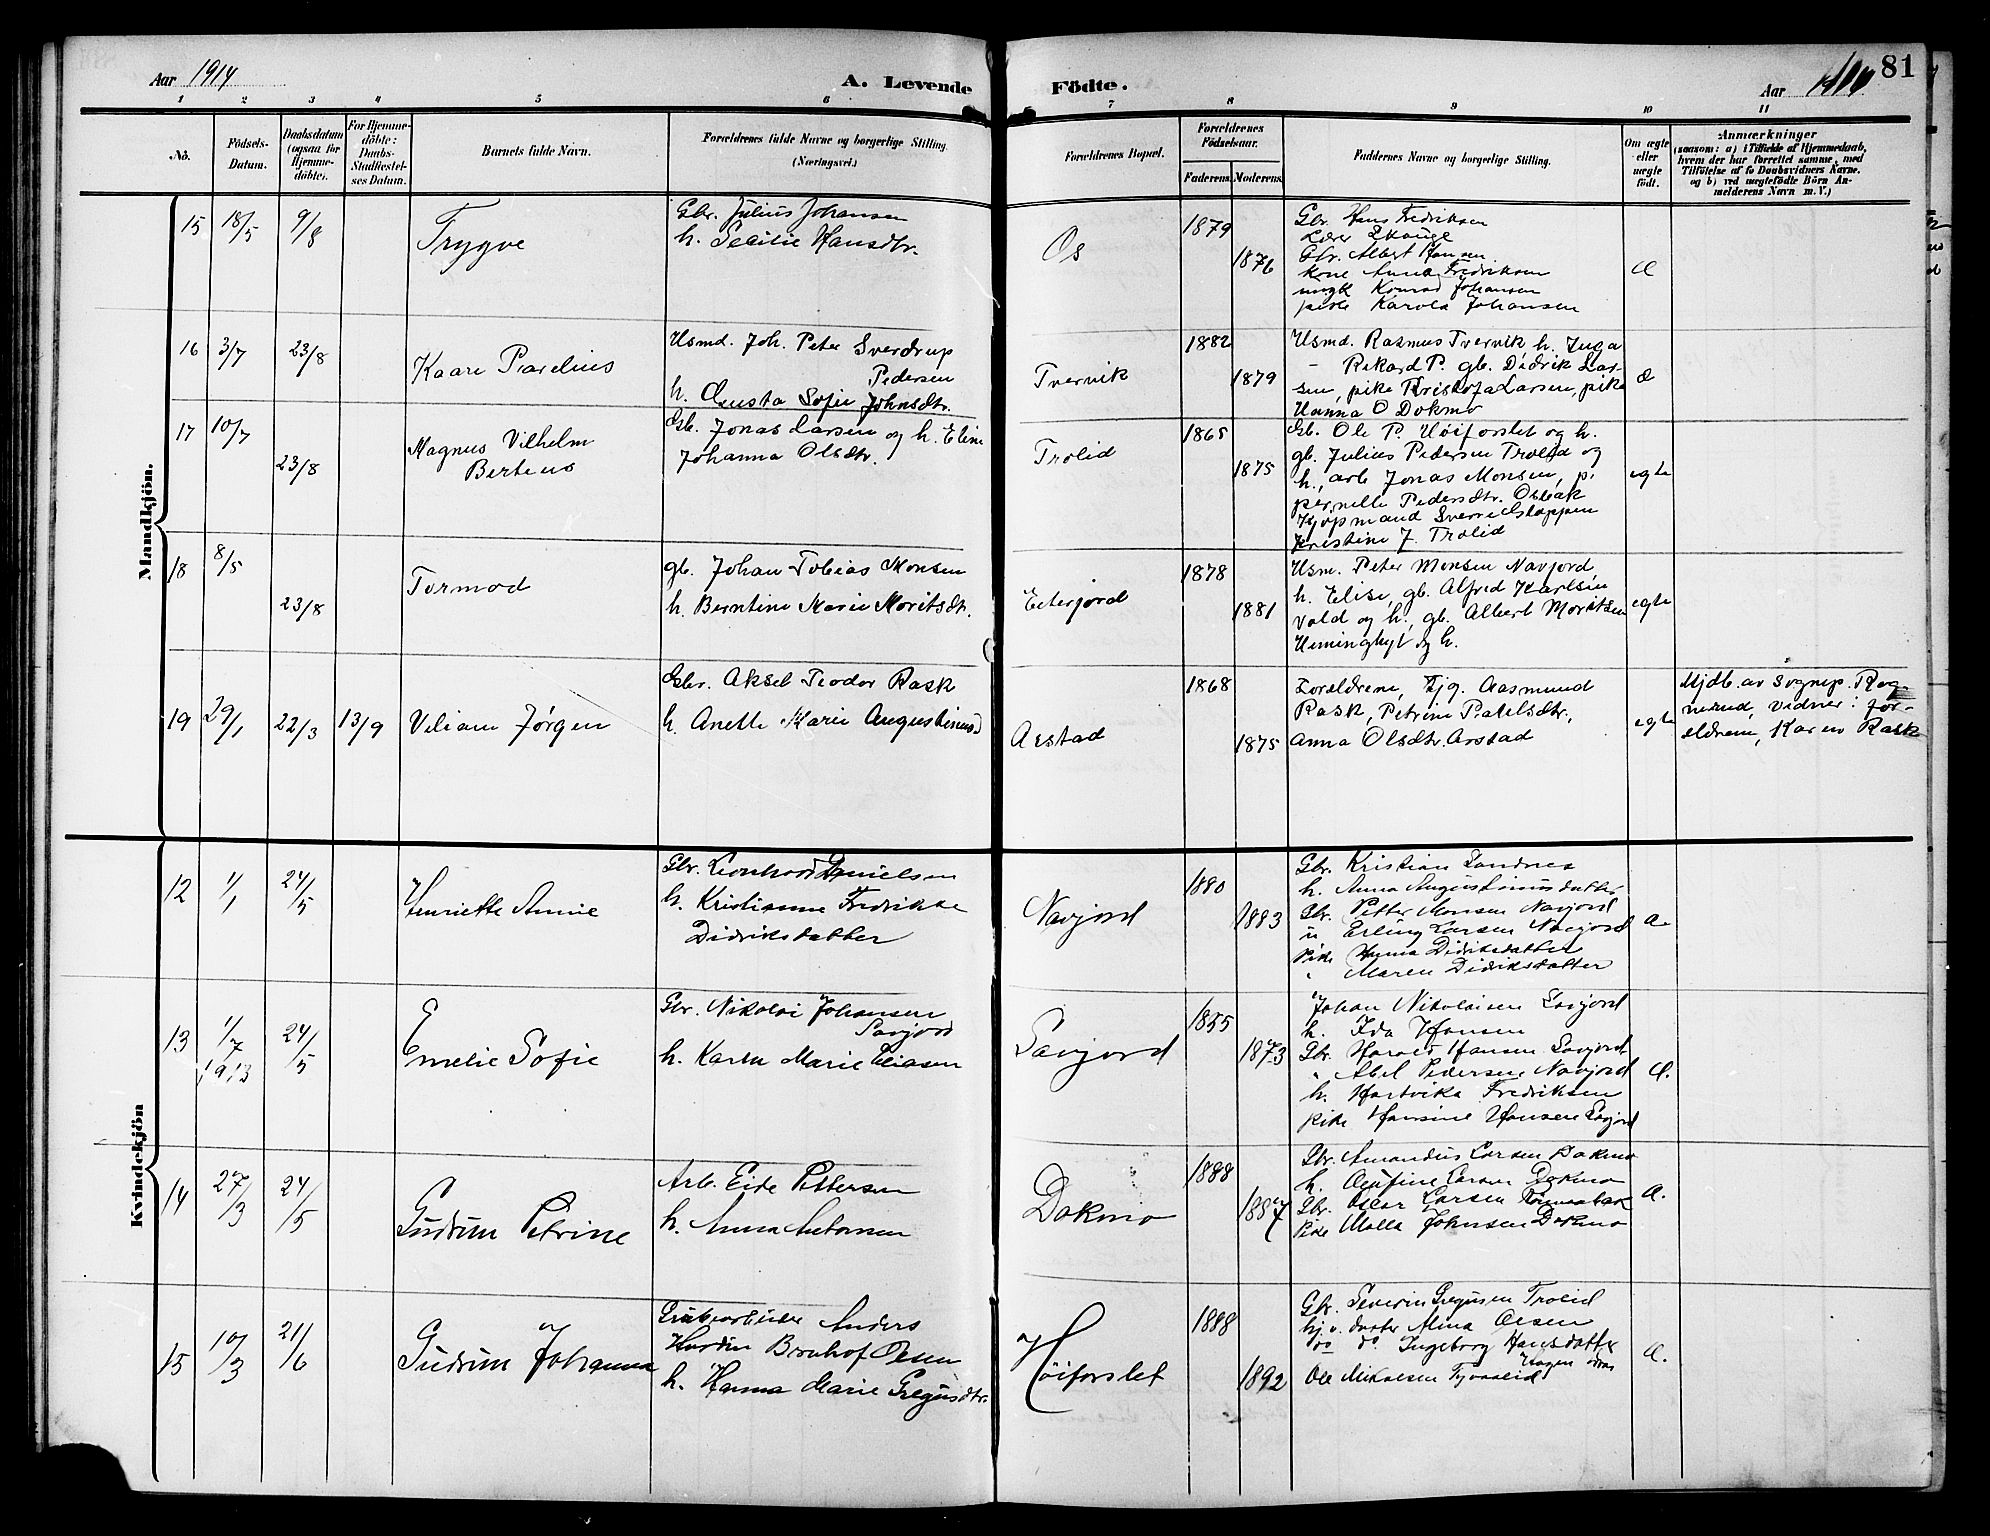 Aar 1914
A. Levende Födte.
Aar 1914
81
1 2 3 4 5 6 7 8 9 10 11
No.
Födsels-Datum.
Daabsdatum (ogsaa for Hjemme-döbte).
For Hjemme-döbte: Daabs-Stadfæstel-ses Datum.
Barnets fulde Navn.
Forældrenes fulde Navne og borgerlige Stilling. (Næringsvei.)
Forældrenes Bopæl.
Forældrenes Födselsaar.
Faderens. Moderens.
Faddernes Navne og borgerlige Stilling.
Om ægte eller uægte födt.
Anmærkninger
(saasom: a) i Tilfælde af Hjemmedaab, hvem der har forrettet samme, med Tilföielse af to Daabsvidners Navne. og b) ved uægtefödte Börn An-melderens Navn m. V.)
Mandkjön.
15 18/5 9/8
Trygve
Gbr. Julius Johansen
h. Secilie Hansdtr.
Os
1879
1876
Gbr. Hans Fredriksen
Lærer Skauge
Gbr. Albert Hansen
Kone Anna Fredriksen
ungk Konrad Johansen
pike Karola Johansen
16 3/7 23/8
Kaare Parelius
Usmd. Joh. Peter Sverdrup
Pedersen
h. Gusta Sofie Johnsdtr.
Tvervik
1882
1879
Usmd. Rasmus Tvervik h. Inga
- Rikard P. gb. Didrik Lar-
sen, pike Kristofa Larsen, pike
Hanna O Dokmo
17 10/7 23/8
Magnus Vilhelm
Berteus
Gb. Jonas Larsen og h. Eline
Johanna Olsdtr.
Trolid
1865
1875
Gb. Ole P. Höiforslet og h.
gb. Julius Pedersen Trolid og
h., arb Jonas Monsen, p.
pernelle Pedersdtr. Osbak
Kjøpmand Sverre Stoppen
Kristine J. Trolid
egte
18 8/5 23/8
Tormod
gb. Johan Tobias Monsen
h. Berntine Marie Moritsdtr.
Eiterjord
1878
1881
Usm. Peter Monsen Navjord
h. Elise, gb. Alfred Karlsen
Vold og h., gb. Albert Moritsen
Heminghyt og h.
egte
19 29/1 22/3 13/9
Viliam Jørgen
Gbr. Aksel Teodor Rask
h. Anette Marie Augustinusd
Arstad
1868
1875
Forældrene, Kjg. Aasmund
Rask, Petrine Paulsdtr.,
Anna Olsdtr. Arstad
egte
Hjdb. av Sognep. Rog-
nerud, vidner: for-
ældrene, Karen Rask
Kvindekjön
12 1/1 24/5
Henriette Annie
Gbr. Leonhard Danielsen
h. Kristianne Fredrikke
Didriksdatter
Navjord
1880
1883
Gbr. Kristian Sandnes
h. Anna Augustinusdatter
Gbr. Petter Monsen Navjord
u Erling Larsen Navjord
Pike Hanna Didriksdatter
" Maren Didriksdatter
13 1/7 1913 24/5
Emelie Sofie
Gbr. Nikolai Johansen
Savjord
h. Karen Marie Eliasen
Savjord
1855
1873
Johan Nikolaisen Savjord
h. Ida Hansen
Gbr. Harald Hansen Savjord
" Abel Pedersen Navjord
h. Hartvika Fredriksen
pike Hansine Hansen Savjord
14 27/3 24/5
Gudrun Petrine
Arb. Eide Pettersen
h. Anna Antonsen
Dokmo
1888
1887
Gbr. Amandus Larsen Dokmo
h. Olufine Larsen Dokmo
Gbr. Oscar Larsen
Pike Malla Johnsen Dokmo
15 10/3 21/6
Gudrun Johanna
Grubearbeider Anders
Hardin Bernhof Olsen
h. Hanna Marie Gregusdtr.
Höiforslet
1888
1892
Gbr. Severin Gregusen Trolid
hj. v. datter Alma Olsen
do do Ingeborg Hansdatter
Ole Mikalsen